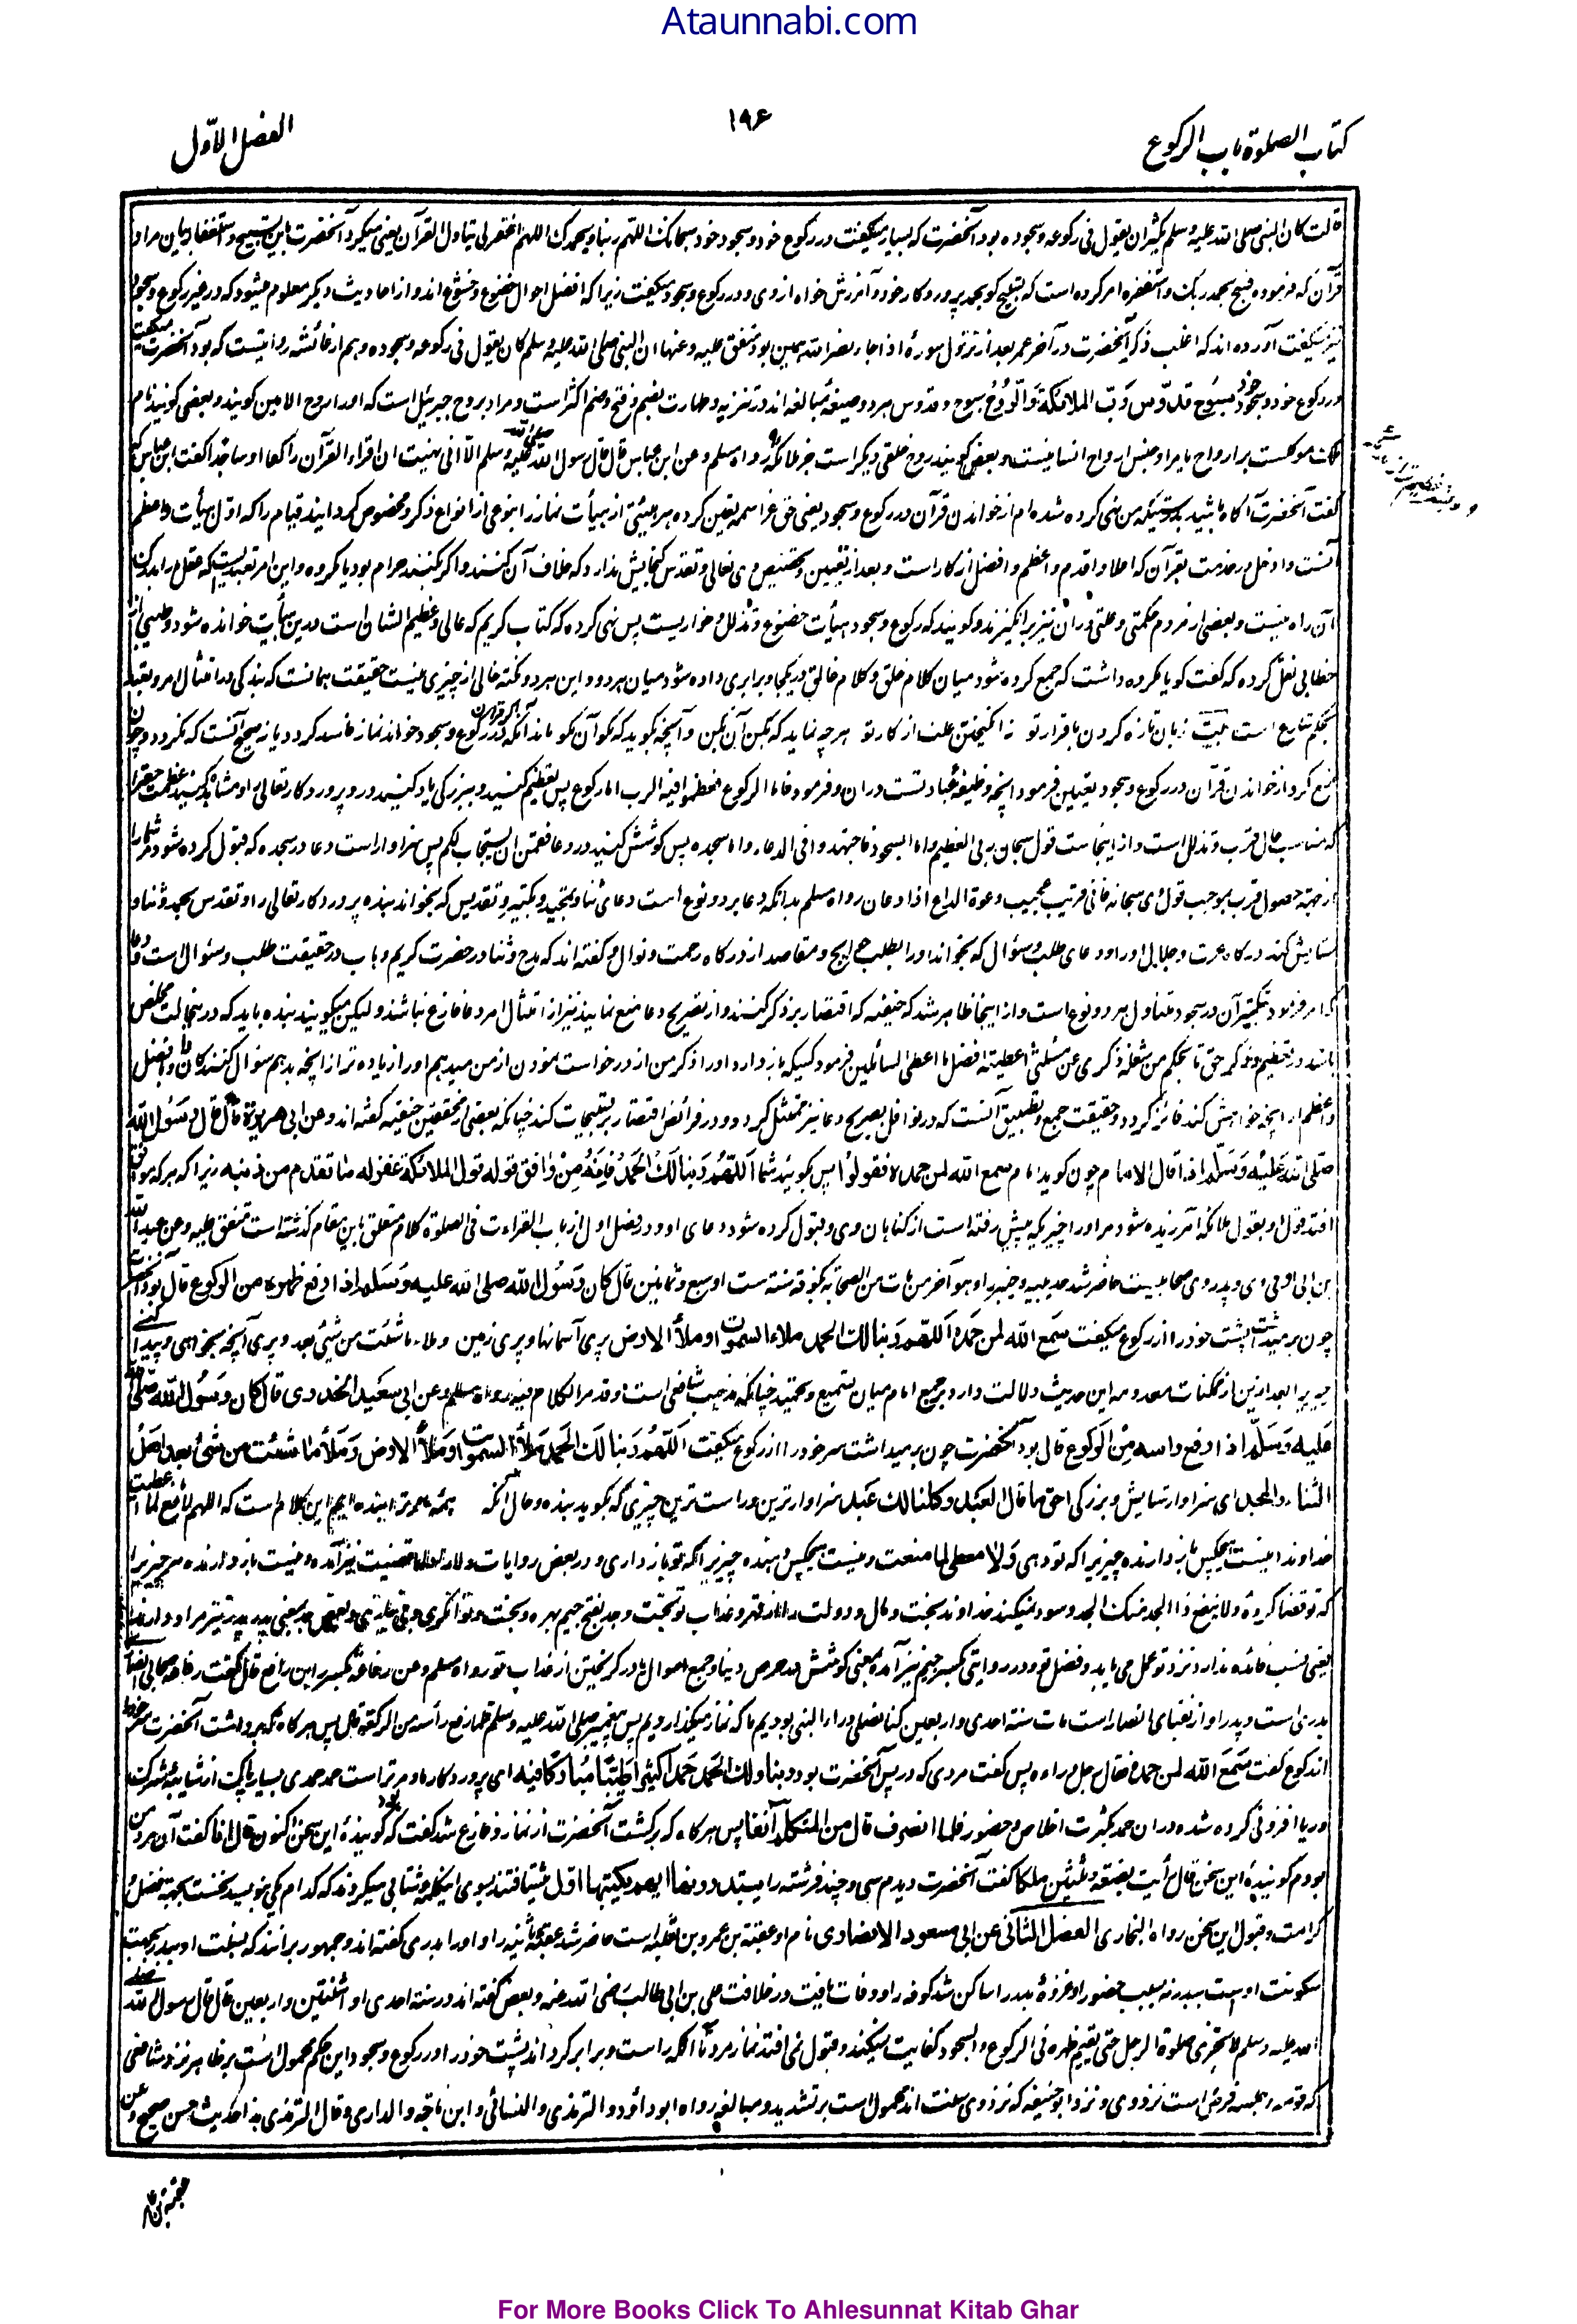 Ataunnabi.com
کتاب الصلوة باب الرکوع
۱۹۶
الفصل الاول
قالت کان النبی صلی الله علیه وسلم یکثر ان یقول فی رکوعه وسجوده بود آنحضرت که بسیار میگفت در رکوع خود و سجود خود سبحانک اللهم ربنا وبحمدک اللهم اغفرلی یتأول القرآن یعنی میگیرد آنحضرت باین تسبیح واستغفار بیان مراد
قرآن که فرموده فسبح بحمد ربک واستغفره امر کرده است که تسبیح گو بحمد پروردگار خود و آمرزش خواه از وی و در رکوع وسجود میگفت زیرا که افضل احوال خضوع و خشوع اند و از احادیث دیگر معلوم میشود که در غیر رکوع وسجود
نیز میگفت آورده اند که اغلب ذکر آنحضرت در آخر عمر بعد از نزول سوره اذا جاء نصر الله همین بود متفق علیه وعنها ان النبی صلی الله علیه وسلم کان یقول فی رکوعه وسجوده وهم از عائشه روایت ست که بود آنحضرت میگفت
در رکوع خود و سجود خود سبوح قدوس رب الملائکة والروح سبوح و قدوس هر دو صیغهٔ مبالغه اند در تنزیه و طهارت بضم و فتح و ضم اکثر است و مراد بروح جبرئیل است که او را روح الامین گویند و بعضی گویند نام
ملک موکلست بر ارواح یا مراد جنس ارواح انسانیست و بعضی گویند روح خلقی دیگر است جز ملائکه رواه مسلم وعن ابن عباس قال قال رسول الله صلی الله علیه وسلم الا انی نهیت ان اقرء القرآن راکعا او ساجدا گفت ابن عباس که
گفت آنحضرت آگاه باشید بدرستیکه من نهی کرده شده ام از خواندن قرآن در رکوع وسجود یعنی حق عز اسمه تعیین کرده هر هیئتی از هیأت نماز را بنوعی از انواع ذکر و مخصوص گردانید قیام را که اول هیأت و اعظم
آنست و ادخل در خدمت بقرآن که اعلا و اقدم و اعظم و افضل اذکار است و بعد از تعیین و تخصیص وی تعالی و تقدس گنجایش ندارد که خلاف آن کنند و اگر کنند حرام بود یا مکروه و این امر تعبدیست که عقل را بدرک
آن راه نیست و بعضی از مردم حکمتی و علتی در آن نیز برانگیزند و گویند که رکوع وسجود هیأت خضوع و تذلل و خواریست پس نهی کرده که کتاب کریم که عالی و عظیم الشان است درین هیأت خوانده شود و طیبی از
خطابی نقل کرده که گفت گویا مکروه داشت که جمع کرده شود میان کلام خلق و کلام خالق در یکجا و برابری داده شود میان هر دو و این هر دو نکته خالی از چیزی نیست حقیقت همانست که بندگی در امتثال امر و تقید
بحکم شارع است بیت زبان تازه کردن باقرار تو نه انگیختن علت از کار تو هر چه نماید که بکن آن بکن و آنچه بگوید که مگو آن مگو بدانکه اگر قرآن در رکوع وسجود خواند نماز فاسد گردد یا نه صحیح آنست که نگردد و چون
منع کرد از خواندن قرآن در رکوع وسجود تعیین فرمود آنچه وظیفهٔ عبادتست در آن و فرمود فاما الرکوع فعظموا فیه الرب اما رکوع پس تعظیم کنید و ببزرگی یاد کنید در وی پروردگار تعالی را و مشاهده کنید عظمت حق را
که مناسب حال قرب و تذلل است و از اینجاست قول سبحان ربی العظیم واما السجود فاجتهدوا فی الدعاء واما سجده پس کوشش کنید در دعا فقمن ان یستجاب لکم پس سزاوار است دعا در سجده که قبول کرده شود مر شما را
از جهة حصول قرب بموجب قول وی سبحانه فانی قریب اجیب دعوة الداع اذا دعان رواه مسلم بدانکه دعا بر دو نوع است دعای ثنا و تمجید و تکبیر و تقدیس که بخواند بنده پروردگار تعالی را و تقدس بحمد و ثنا و
ستایش کند درگاه عزت و جلال او را و دعای طلب و سؤال که بخواند او را بطلب حوائج و مقاصد از درگاه رحمت و نوال و گفته اند که مدح و ثنا در حضرت کریم وهاب در حقیقت طلب و سئوال است و دعا
که امر فرمود بتکثیر آن در سجود متناول هر دو نوع است و از اینجا ظاهر شد که حنفیه که اقتصار بر ذکر کنند و از تصریح دعا منع نمایند نیز از امتثال امر دعا فارغ نباشند و لیکن میگویند بنده باید که در نیحالت مخلص
باشد در تعظیم و ذکر حق تا بحکم من شغله ذکری عن مسئلتی اعطیته افضل ما اعطی السائلین فرمود کسیکه باز دارد او را ذکر من از درخواست نمودن از من میدهم او را زیاده تر از آنچه بدهم سئوال کنندگان را و افضل
و اعظم از آنچه خواهش کند فائز گردد و حقیقت جمع و تطبیق آنست که در نوافل بصریح دعا نیز متمثل گردد و در فرائض اقتصار بر تسبیحات کند چنانکه بعضی از محققین حنفیه گفته اند وعن ابی هریرة قال قال رسول الله
صلی الله علیه وسلم اذا قال الامام چون گوید امام سمع الله لمن حمده فقولوا پس بگوئید شما اللهم ربنا لک الحمد فانه من وافق قوله قول الملائکة غفر له ما تقدم من ذنبه زیرا که هر که موافق
افتد قول او بقول ملائکه آمرزیده شود مر او را چیزیکه پیش رفته است از گناهان وی و قبول کرده شود دعای او و در فصل اول از باب القراءت فی الصلوة کلام متعلق باین مقام گذشته است متفق علیه وعن عبد الله
بن ابی اوفی وی و پدر وی صحابیست حاضر شد حدیبیه و خیبر را و هو آخر من مات من الصحابة بکوفه سنه ست او سبع وثمانین قال کان رسول الله صلی الله علیه وسلم اذا رفع ظهره من الرکوع قال بود آنحضرت
چون برمیداشت پشت خود را از رکوع میگفت سمع الله لمن حمده اللهم ربنا لک الحمد ملاء السموات وملأ الارض پری آسمانها و پری زمین وملاء ما شئت من شیئ بعد و پری آنچه بخواهی و پیدا کنی
چیزیرا بعد ازین از ممکنات معدومه این حدیث دلالت دارد بر جمع امام میان تسمیع و تحمید چنانکه مذهب شافعی است و قد مر الکلام فیه رواه مسلم وعن ابی سعید الخدری قال کان رسول الله صلی الله
علیه وسلم اذا رفع راسه من الرکوع قال بود آنحضرت چون برمیداشت سر خود را از رکوع میگفت اللهم ربنا لک الحمد ملأ السموات وملأ الارض وملأ ما شئت من شیئ بعد اهل
الثناء والمجد ای سزاوار ستایش و بزرگی احق ما قال العبد وکلنا لک عبد سزاوارترین و راست ترین چیزی که بگوید بنده و حال آنکه همه ما مر ترا بنده ایم این کلام است که اللهم لا مانع لما اعطیت
خداوندا نیست هیچکس باز دارنده چیزیرا که تو دهی ولا معطی لما منعت و نیست هیچکس دهنده چیزیرا که تو باز داری و در بعض روایات ولا راد لما قضیت نیز آمده و نیست باز دارنده مر چیزیرا
که تو قضا کردهٔ ولا ینفع ذا الجد منک الجد و سود نمیکند خداوند بخت و مال و دولت را از قهر و عذاب تو بخت وجد بفتح جیم بهره و بخت و توانگری
یعنی نسب فائده ندارد نزد تو عمل می باید و فضل تو و در روایتی بکسر جیم نیز آمده بمعنی کوشش در حرص دنیا و جمع اموال یا در گریختن از عذاب تو رواه مسلم وعن رفاعة بکسر راء ابن رافع قال گفت رفاعه صحابی انصاری
بدری است و پدر او از نقبای انصار است مات سنه احدی واربعین کنا نصلی وراء النبی بودیم ما که نماز میگذاردیم پس پیغمبر صلی الله علیه وسلم فلما رفع رأسه من الرکعة قال پس هرگاه که برداشت آنحضرت سر خود را
از رکوع گفت سمع الله لمن حمده فقال رجل وراءه پس گفت مردی که در پس آنحضرت بود ربنا ولک الحمد حمدا کثیرا طیبا مبارکا فیه ای پروردگار ما و مر تراست حمد حمدی بسیار پاک از شائبه شرک
و ریا افزونی کرده شده در آن حمد بکثرت اخلاص و حضور فلما انصرف قال من المتکلم آنفا پس هرگاه که برگشت آنحضرت از نماز و فارغ شد گفت که بود گویندهٔ این سخن اکنون قال انا گفت آن مرد من
بودم گویندهٔ این سخن قال رأیت بضعة وثلثین ملکا گفت آنحضرت دیدم سی و چند فرشته را یبتدرونها ایهم یکتبها اول میشتافتند بسوی اینکلمه و شتابی میکردند که کدام یکی بنویسد نخست بجهة فضل و
کرامت و قبول این سخن رواه البخاری الفصل الثانی عن ابی مسعود الانصاری نام او عقبة بن عمرو بن ثعلبه است حاضر شد عقبهٔ ثانیه را و او را بدری گفته اند و جمهور بر آنند که نسبت او ببدر بجهت
سکونت اوست ببدر نه بسبب حضور او غزوهٔ بدر را ساکن شد کوفه را و وفات یافت در خلافت علی بن ابی طالب رضی الله عنه و بعض گفته اند در سنه احدی او اثنتین واربعین قال قال رسول الله صلی
الله علیه وسلم لا تجزی صلوة الرجل حتی یقیم ظهره فی الرکوع والسجود کفایت نمیکند و قبول نمی افتد نماز مرد تا آنکه راست و برابر گرداند پشت خود را در رکوع وسجود این حکم محمول است بر ظاهر نزد شافعی
که قومه و جلسه فرض است نزد وی و نزد ابو حنیفه که نزد وی سنت اند محمول است بر تشدید و مبالغه رواه ابو داؤد والترمذی والنسائی وابن ماجه والدارمی وقال الترمذی هذا حدیث حسن صحیح وعن
For More Books Click To Ahlesunnat Kitab Ghar